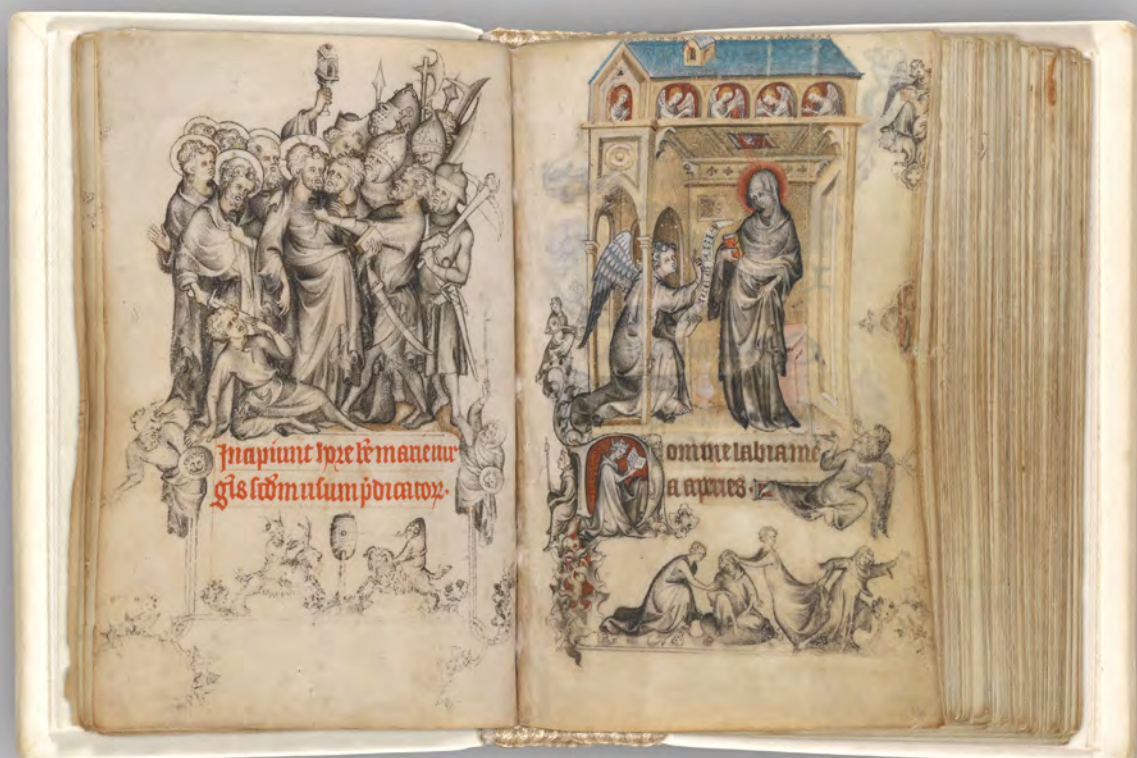 Incipiunt hore bt̄e marie uir
gis scd̄m usum p̄dicatoꝝ.
Domine labia me
a aꝑies.